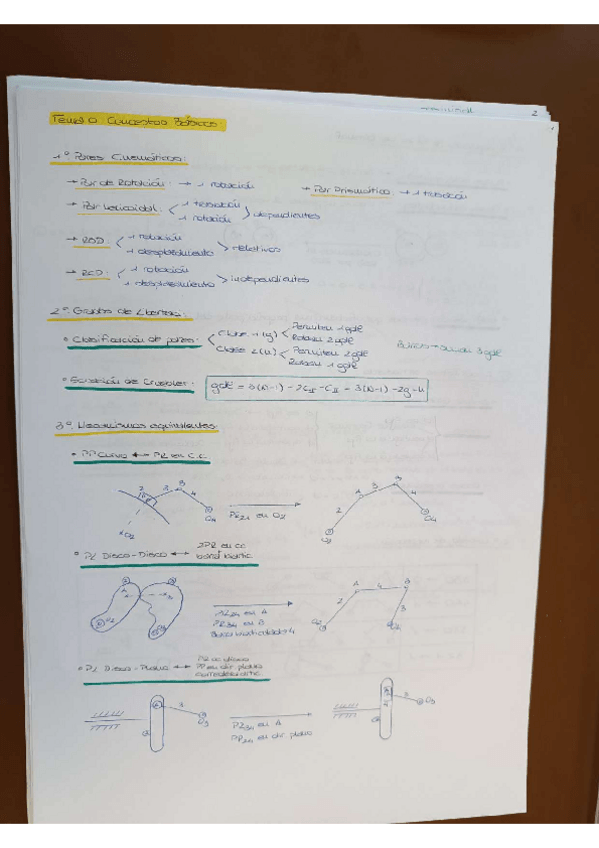 2
1
Tema 0: Conceptos Básicos:
1º. Pares Cinemáticos:
→ Par de Rotación: → 1 rotación
→ Par Prismático → 1 traslación
→ Par Helicoidal: 1 traslación
1 rotación
independientes
→ RSD: 1 rotación
1 desplazamiento
relativos
→ RCD: 1 rotación
1 desplazamiento
independientes
2º. Grados de Libertad:
• Clasificación de pares: Clase I (g) Permiten 1 gdl
Restan 2 gdl
Clase II (u) Permiten 2 gdl
Restan 1 gdl
3 gdl
• Ecuación de Gruebler:
3º. Mecanismos equivalentes:
• PP Curvo ↔ PR en C.C.
2
3
O2
O4
PR21 en O2
2
3
O2
O4
• PL Disco-Disco ↔ 2PR en cc
O2
PR34 en B
A
4
B
2
3
O2
• PL Disco-Plano ↔ PR cc disco
PP en dir. plano
3
O3
PR34 en A
PP24 en dir. plano
3
O3